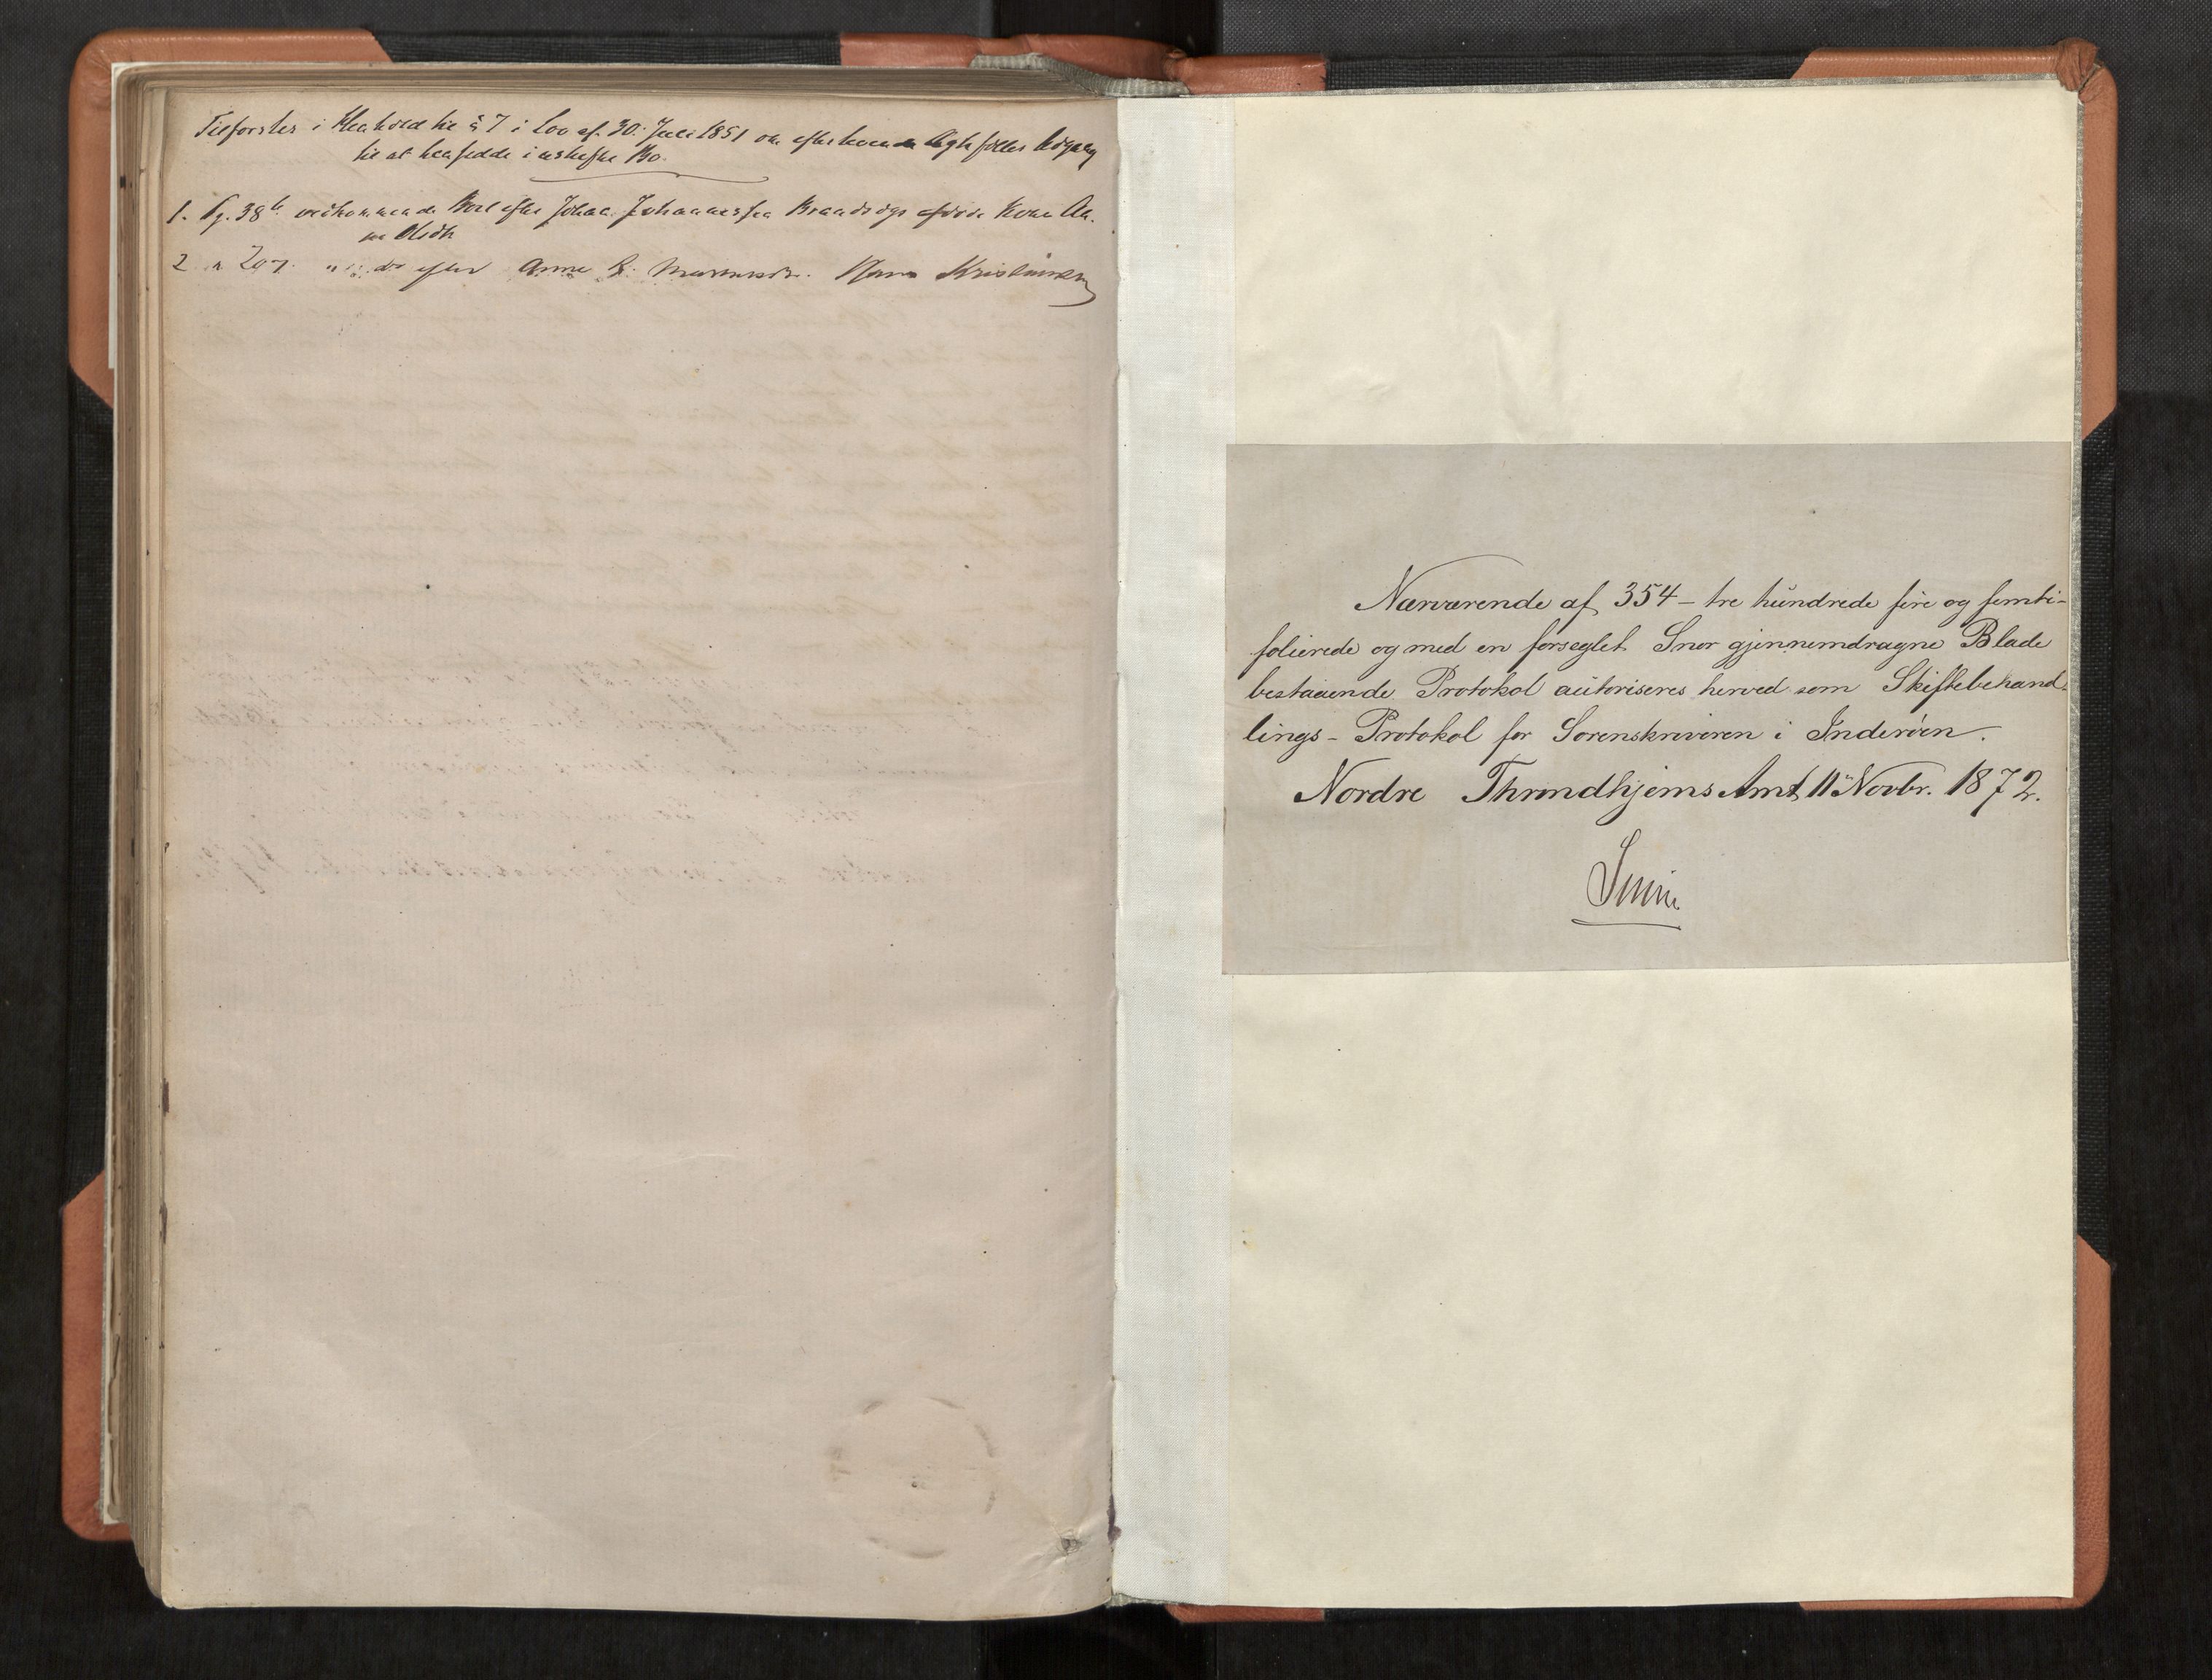 Tilførsler i Henhold til § 7 i Lov af 30. Juli 1851 om efterlevende Ægtefælles Adgang
til at hensidde i uskiftet Bo.
1. Pg. 38 b. vedkommende Boet efter Johan Johannessen Brandsegs afdøde Kone An-
ne Olsdtr
2 " 297. " do efter Anne Kristiansen
Nærværende af 354 - tre hundrede fire og femti-
folierede og med en forseglet Snor gjennemdragne Blade
bestaaende Protokol autoriseres herved som Skiftebehand-
lings-Protokol for Sorenskriveren i Inderøen.
Nordre Throndhjems Amt, 11 Novbr. 1872.